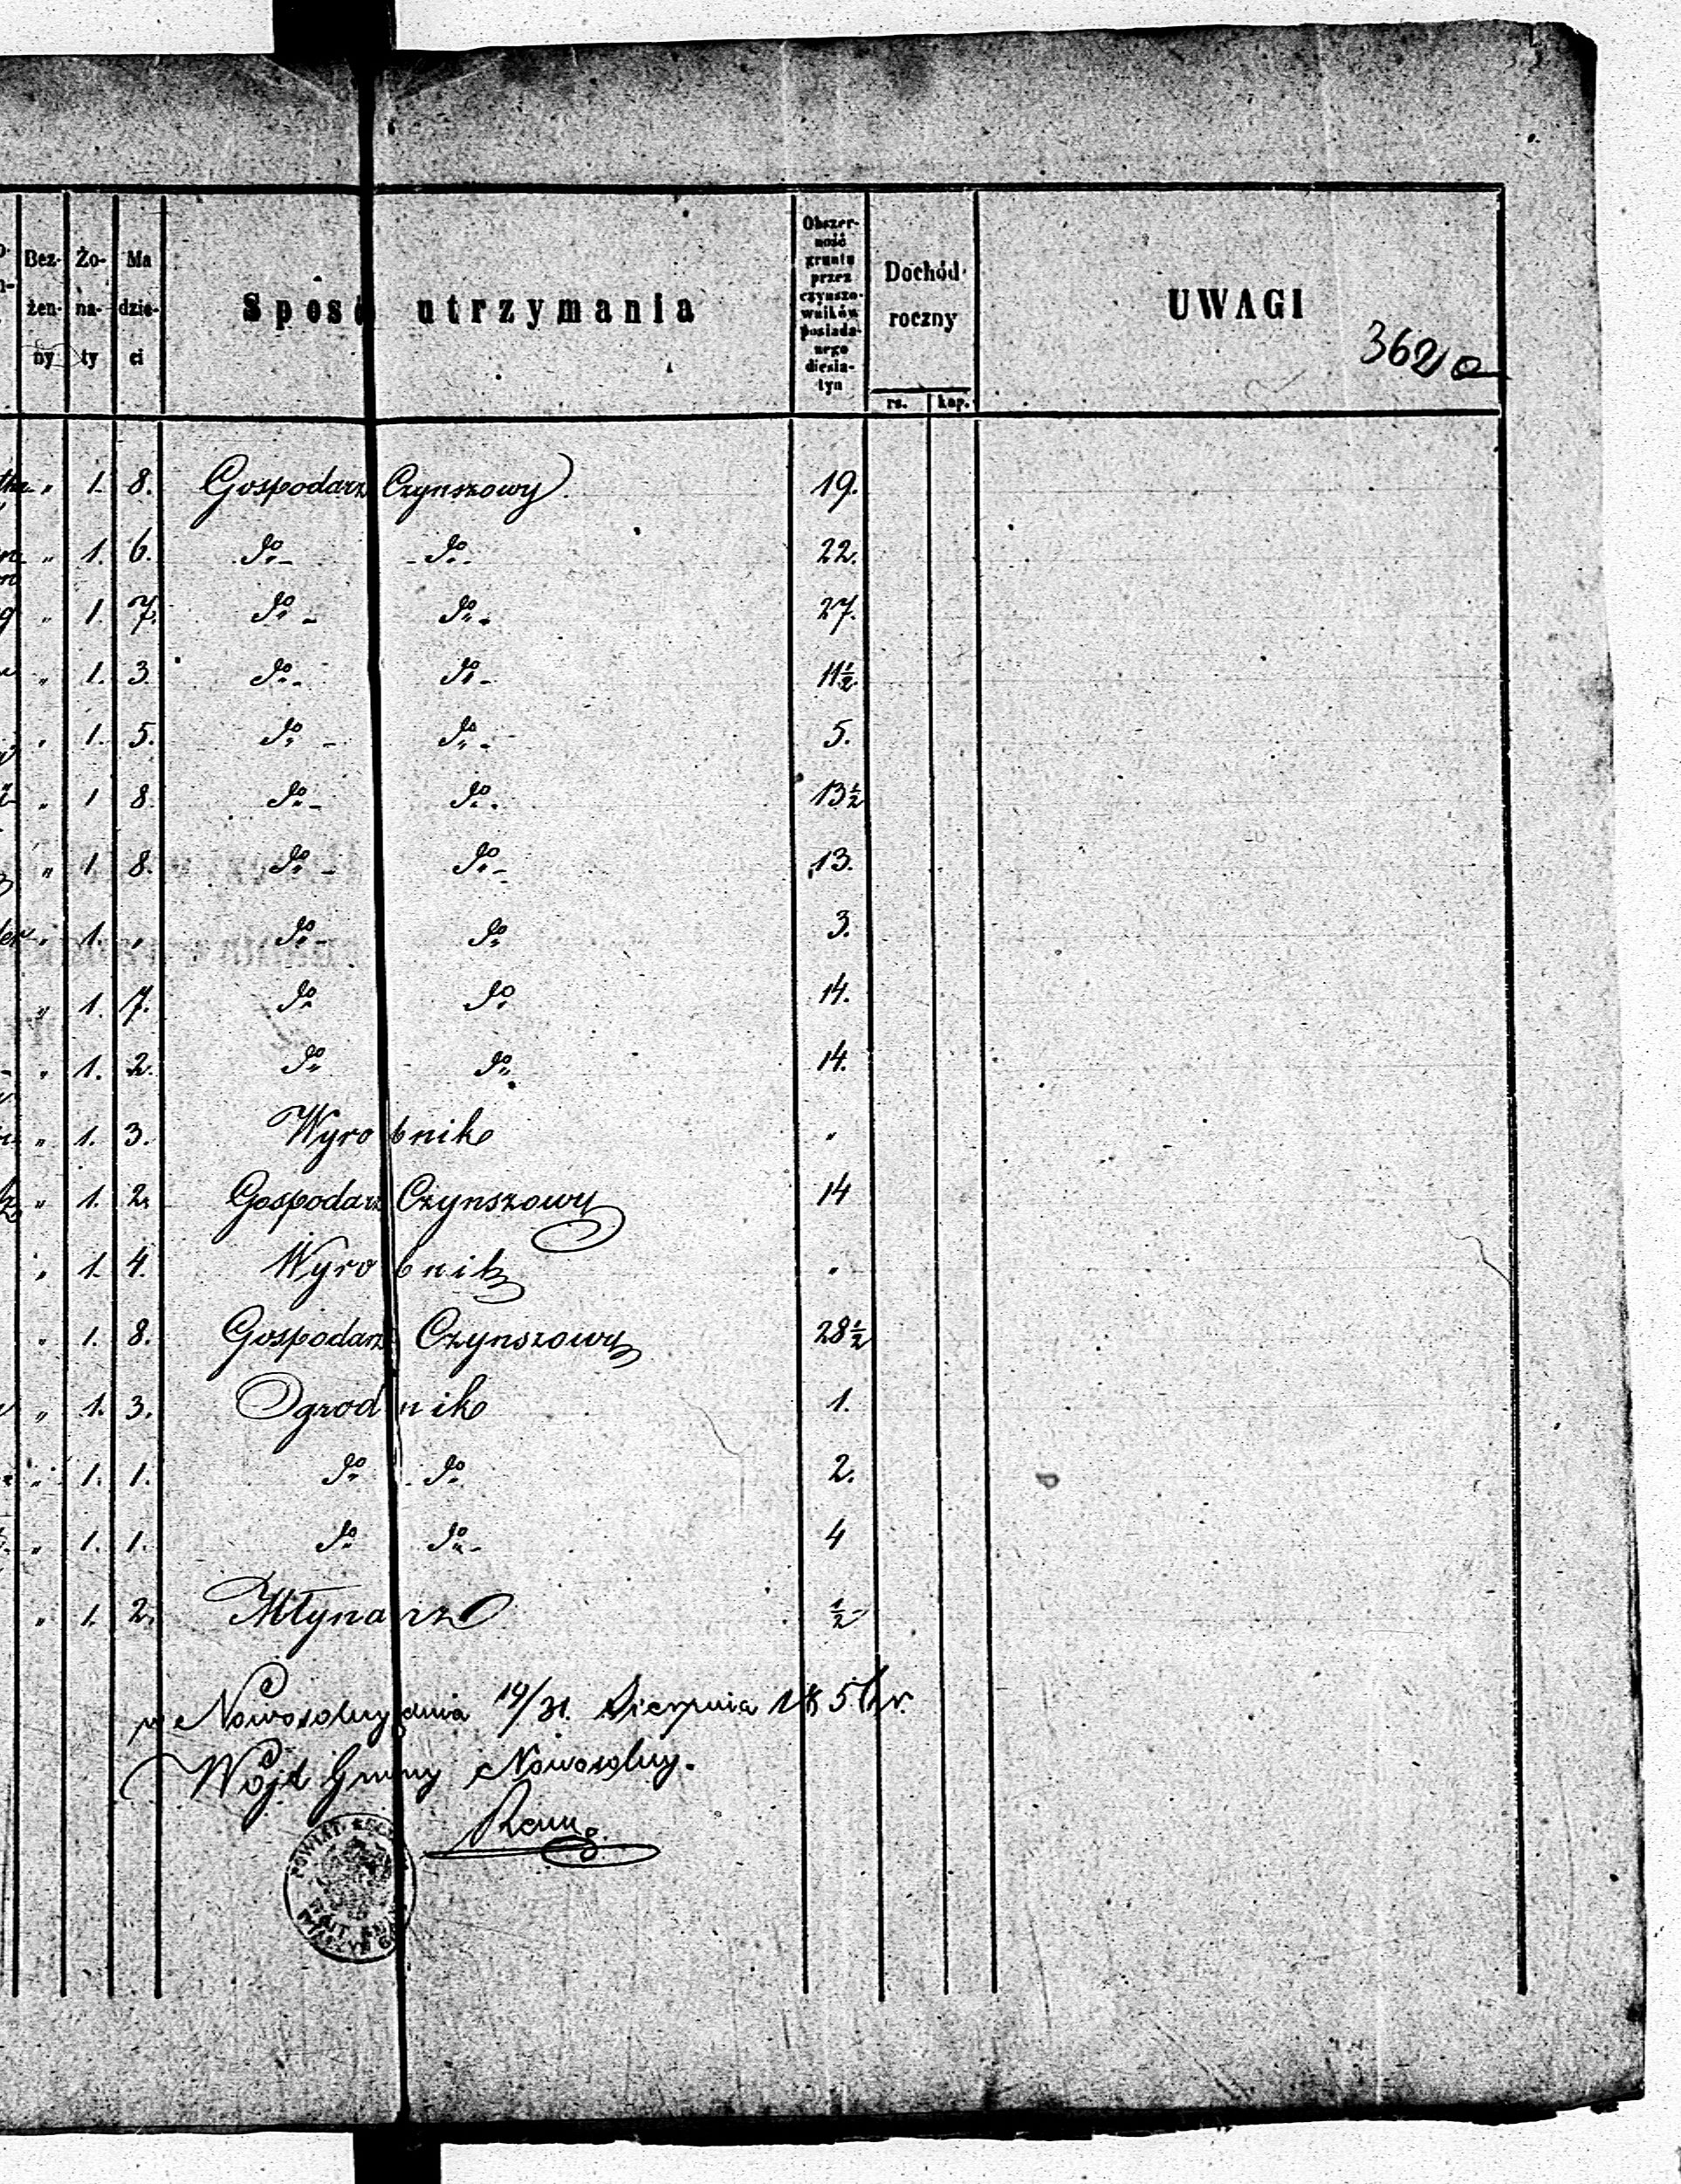 Bez- żen- ny
Żo- na- ty
Ma dzie- ci
Sposó utrzymania
Obszer- ność gruntu przez czynszo- wników posiada- nego diesia- tyn
Dochód roczny
rs. kop.
UWAGI
362
" 1. 8. Gospodarz Czynszowy. 19.
" 1. 6. do do 22.
" 1. 7. do do 27.
" 1. 3. do do 11½
" 1. 5. do do 5.
" 1 8 do do 13½
" 1 8. do do 13.
" 1. " do do 3.
" 1. 7. do do 14.
" 1. 2. do do 14.
" 1. 3. Wyrobnik "
" 1. 2. Gospodarz Czynszowy 14
" 1. 4. Wyrobnik "
" 1. 8. Gospodarz Czynszowy 28½
" 1. 3. Ogrodnik 1.
" 1. 1. do do 2.
" 1. 1. do do 4
" 1. 2. Młynarz ½
w Nowosolny dnia 19/31. Sierpnia
Wójt Gminy Nowosolny.
POWIAT